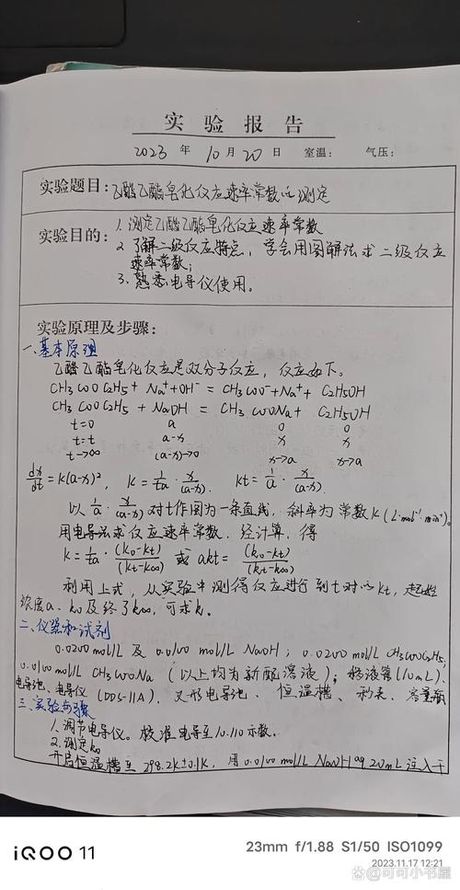 实验报告
2023 年 10 月 20 日 室温： 气压：
实验题目：乙酸乙酯皂化反应速率常数的测定
实验目的：1. 测定乙酸乙酯皂化反应速率常数
2. 了解二级反应特点，学会用图解法求二级反应
速率常数；
3. 熟悉电导仪使用。
实验原理及步骤：
一、基本原理
乙酸乙酯皂化反应是双分子反应，反应如下。
CH3COOC2H5 + Na⁺+OH⁻ = CH3COO⁻+Na⁺+ C2H5OH
CH3COOC2H5 + NaOH = CH3COONa + C2H5OH
t=0 a 0 0
t=t a-x x x
t→∞ (a-x)→0 x→a x→a
dx/dt = k(a-x)², k = 1/ta · x/(a-x), kt = 1/a · x/(a-x)
以 1/a · x/(a-x) 对t作图为一条直线，斜率为常数k (L·mol⁻¹·min⁻¹)。
用电导法求反应速率常数，经计算，得
k = 1/ta · (k0-kt)/(kt-k∞) 或 akt = (k0-kt)/(kt-k∞)
利用上式，从实验中测得反应进行到t时的kt，起始
浓度a、k0及终了k∞，可求k。
二、仪器和试剂
0.0200 mol/L 及 0.0100 mol/L NaOH；0.0200 mol/L CH3COOC2H5，
0.0100 mol/L CH3COONa（以上均为新配溶液）；移液管(10mL)、
电导池、电导仪(DDS-11A)、叉形电导池、恒温槽、秒表、容量瓶
三、实验步骤
1. 调节电导仪。校准电导至10.110示数。
2. 测定k0
开启恒温槽至 298.2K±0.1K，用0.0100 mol/L NaOH 20mL 注入干
iQOO 11
23mm f/1.88 S1/50 ISO1099
2023.11.17 12:21
@可可小书屋